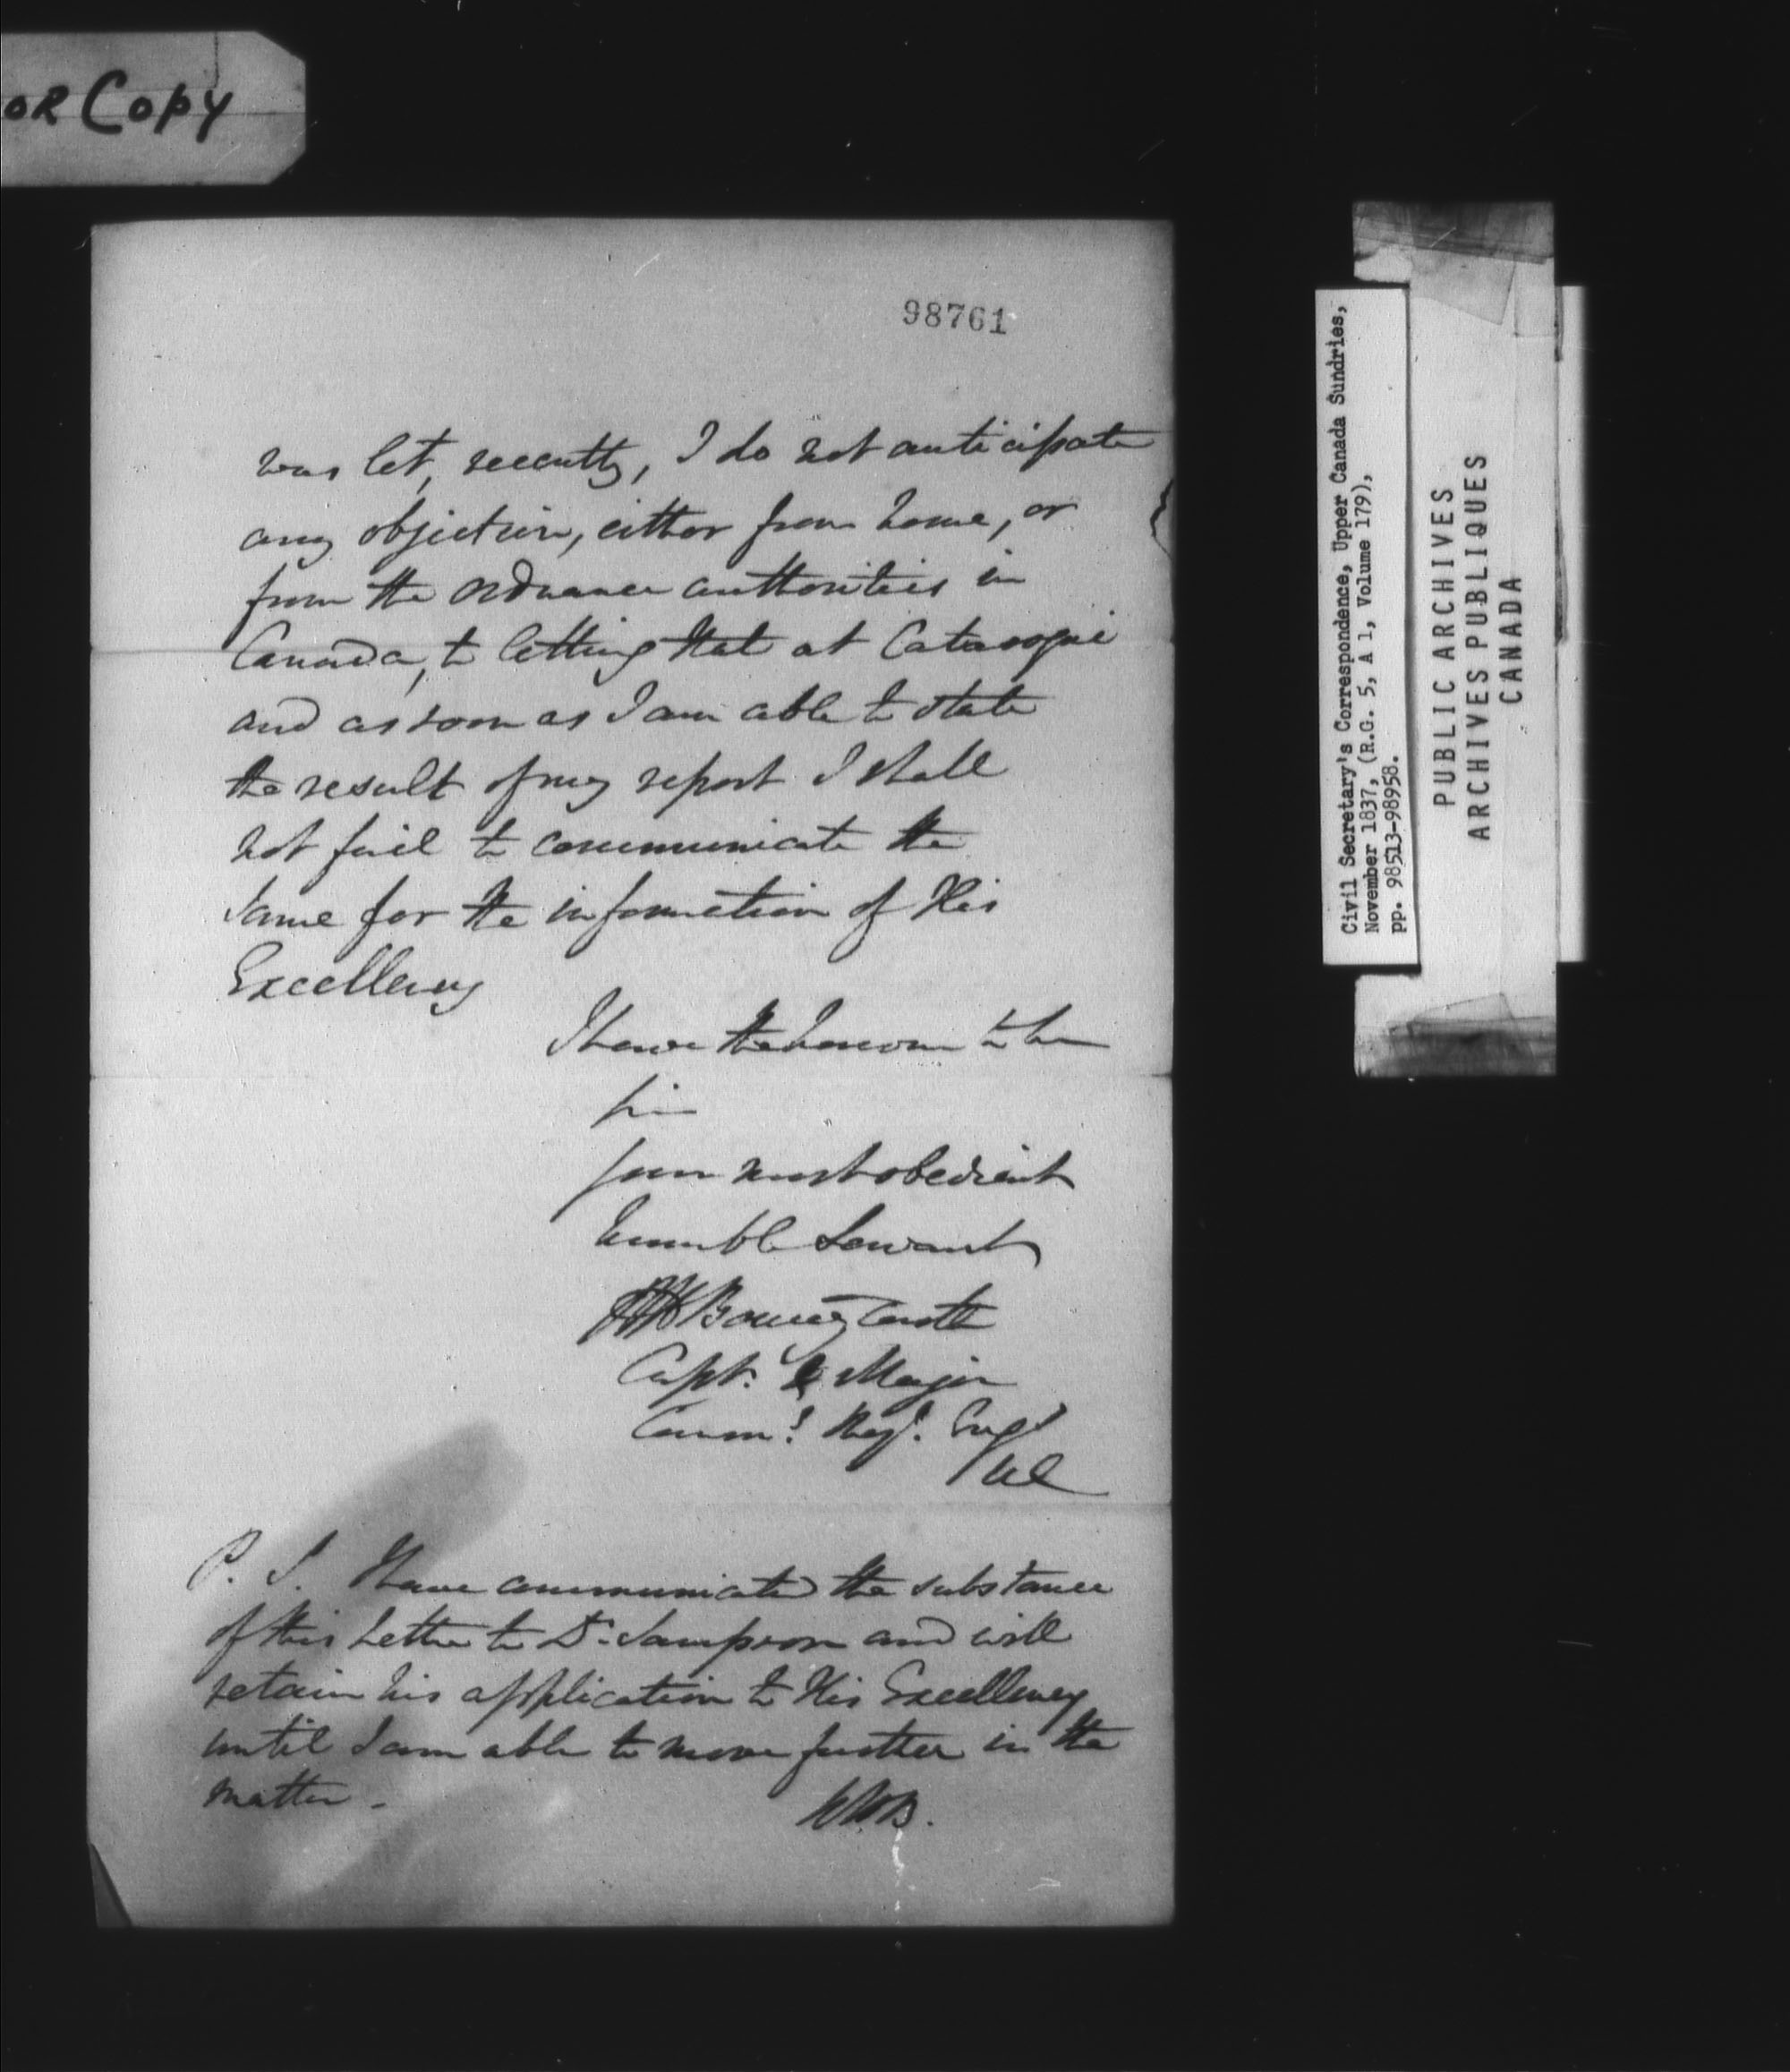 OR Copy
98761
was let, recently, I do not anticipate
any objection, either from home, or
from the Ordnance authorities in
Canada, to letting that at Cataraqui
and as soon as I am able to state
the result of my report I shall
not fail to communicate the
same for the information of His
Excellency
I have the honour to be
Sir
Your most obedient
humble Servant
Bonnycastle
Capt. & Major
Comm^g Roy^l. Eng^r
UC
P. S. I have communicated the substance
of this Letter to Dr. Sampson and will
retain his application to His Excellency
until I am able to move further in the
matter -
RHB.
Civil Secretary's Correspondence, Upper Canada Sundries,
November 1837, (R.G. 5, A 1, Volume 179),
pp. 98513-98958.
PUBLIC ARCHIVES
ARCHIVES PUBLIQUES
CANADA